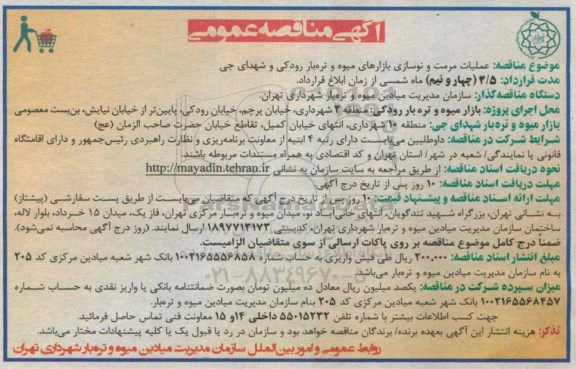 آگهی مناقصه عمومی
موضوع مناقصه: عملیات مرمت و نوسازی بازارهای میوه و تره‌بار رودکی و شهدای جی
مدت قرارداد: ۳/۵ (چهار و نیم) ماه شمسی از زمان ابلاغ قرارداد.
دستگاه مناقصه‌گذار: سازمان مدیریت میادین میوه و تره‌بار شهرداری تهران.
محل اجرای پروژه: بازار میوه و تره بار رودکی: منطقه ۲ شهرداری، خیابان پرچم، خیابان رودکی، پایین‌تر از خیابان نیایش، بن‌بست معصومی
بازار میوه و تره‌بار شهدای جی: منطقه ۱۰ شهرداری، انتهای خیابان کمیل، تقاطع خیابان حضرت صاحب الزمان (عج)
شرایط شرکت در مناقصه: داوطلبین می‌بایست دارای رتبه ۴ ابنیه از معاونت برنامه‌ریزی و نظارت راهبردی رئیس‌جمهور و دارای اقامتگاه
قانونی یا نمایندگی/ شعبه در شهر/ استان تهران و کد اقتصادی به همراه مستندات مربوطه باشند.
نحوه دریافت اسناد مناقصه: از طریق مراجعه به سایت سازمان به نشانی http://mayadin.tehran.ir
مهلت دریافت اسناد مناقصه: ۱۰ روز پس از تاریخ درج آگهی.
مهلت ارائه اسناد مناقصه و پیشنهاد قیمت: ۱۰ روز پس از تاریخ درج آگهی که متقاضیان می‌بایست از طریق پست سفارشی (پیشتاز)
به نشانی تهران، بزرگراه شهید تندگویان، انتهای خانی‌آباد نو، میدان میوه و تره‌بار مرکزی تهران، فاز یک، میدان ۱۵ خرداد، بلوار لاله،
ساختمان سازمان مدیریت میادین میوه و تره بار شهرداری تهران، کدپستی ۱۸۹۷۷۱۳۱۷۳ ارسال نمایند. (روز درج آگهی محاسبه نمی‌شود).
ضمناً درج کامل موضوع مناقصه بر روی پاکات ارسالی از سوی متقاضیان الزامیست.
مبلغ انتشار اسناد مناقصه: ۲۰۰,۰۰۰ ریال طی فیش واریزی به حساب شماره ۱۰۰۲۱۶۵۵۵۶۸۵۸ بانک شهر شعبه میادین مرکزی کد ۲۰۵
به نام سازمان مدیریت میادین میوه و تره‌بار می‌باشد.
میزان سپرده شرکت در مناقصه: یکصد میلیون ریال معادل ده میلیون تومان بصورت ضمانتنامه بانکی یا واریز نقدی به حساب شماره
۱۰۰۲۱۶۵۵۶۸۴۵۷ بانک شهر شعبه میادین مرکزی کد ۲۰۵ بنام سازمان مدیریت میادین میوه و تره‌بار.
جهت کسب اطلاعات بیشتر با شماره تلفن ۵۵۰۱۵۲۳۲ داخلی ۱۴ و ۱۵ معاونت فنی تماس حاصل فرمائید.
تذکر: هزینه انتشار این آگهی بعهده برنده/ برندگان مناقصه خواهد بود و سازمان در رد یا قبول یک یا کلیه پیشنهادات مختار می‌باشد.
روابط عمومی و امور بین‌الملل سازمان مدیریت میادین میوه و تره‌بار شهرداری تهران
۰۲۱-۸۸۳۴۹۶۷۰